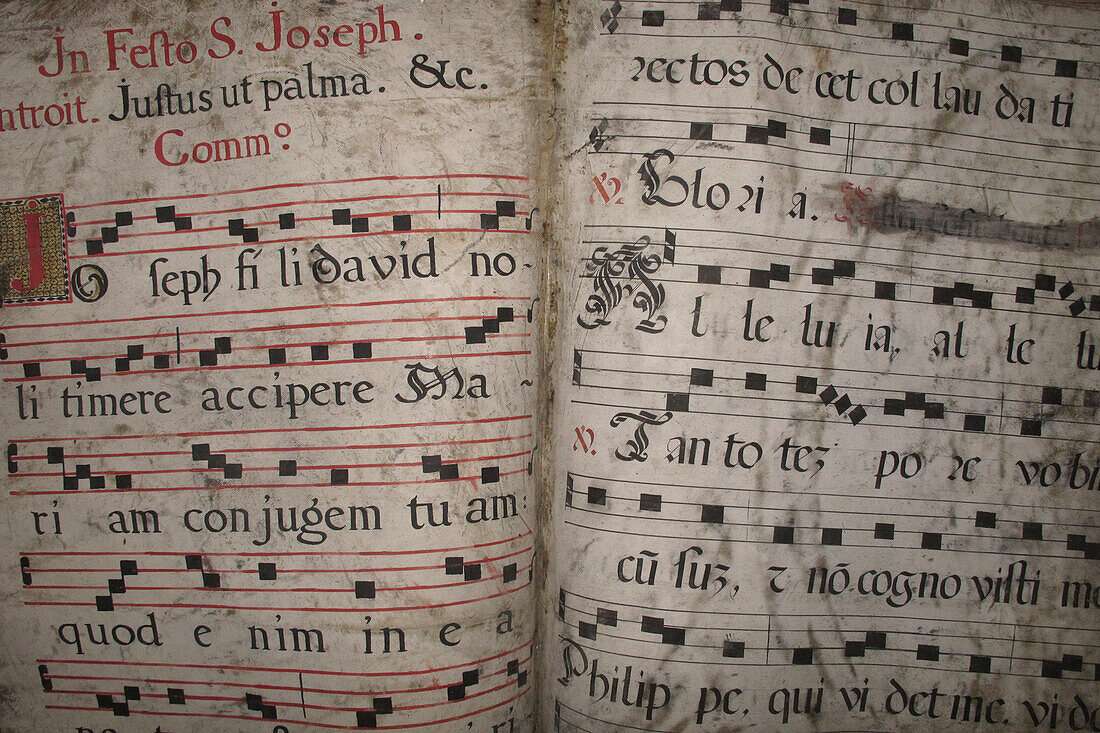 Jn Feſto S. Joseph.
ntroit. Juſtus ut palma. &c.
Comm.º
JO ſeph fi li David no-
li timere accipere Ma-
ri am conjugem tu am:
quod e nim in e a
rectos de cet col lau da ti
Glo ri a.
Al le lu ia, al le lu
Tan to teʒ po re vobi
cū ſuʒ, ⁊ nō cogno viſti me
Philip pe, qui vi det me, vi de